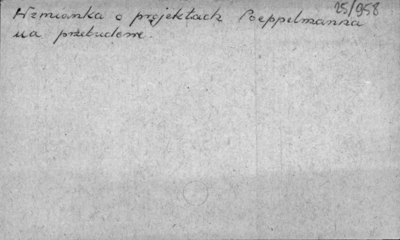 25/958
Wzmianka o projektach Poeppelmanna
na przebudowę.